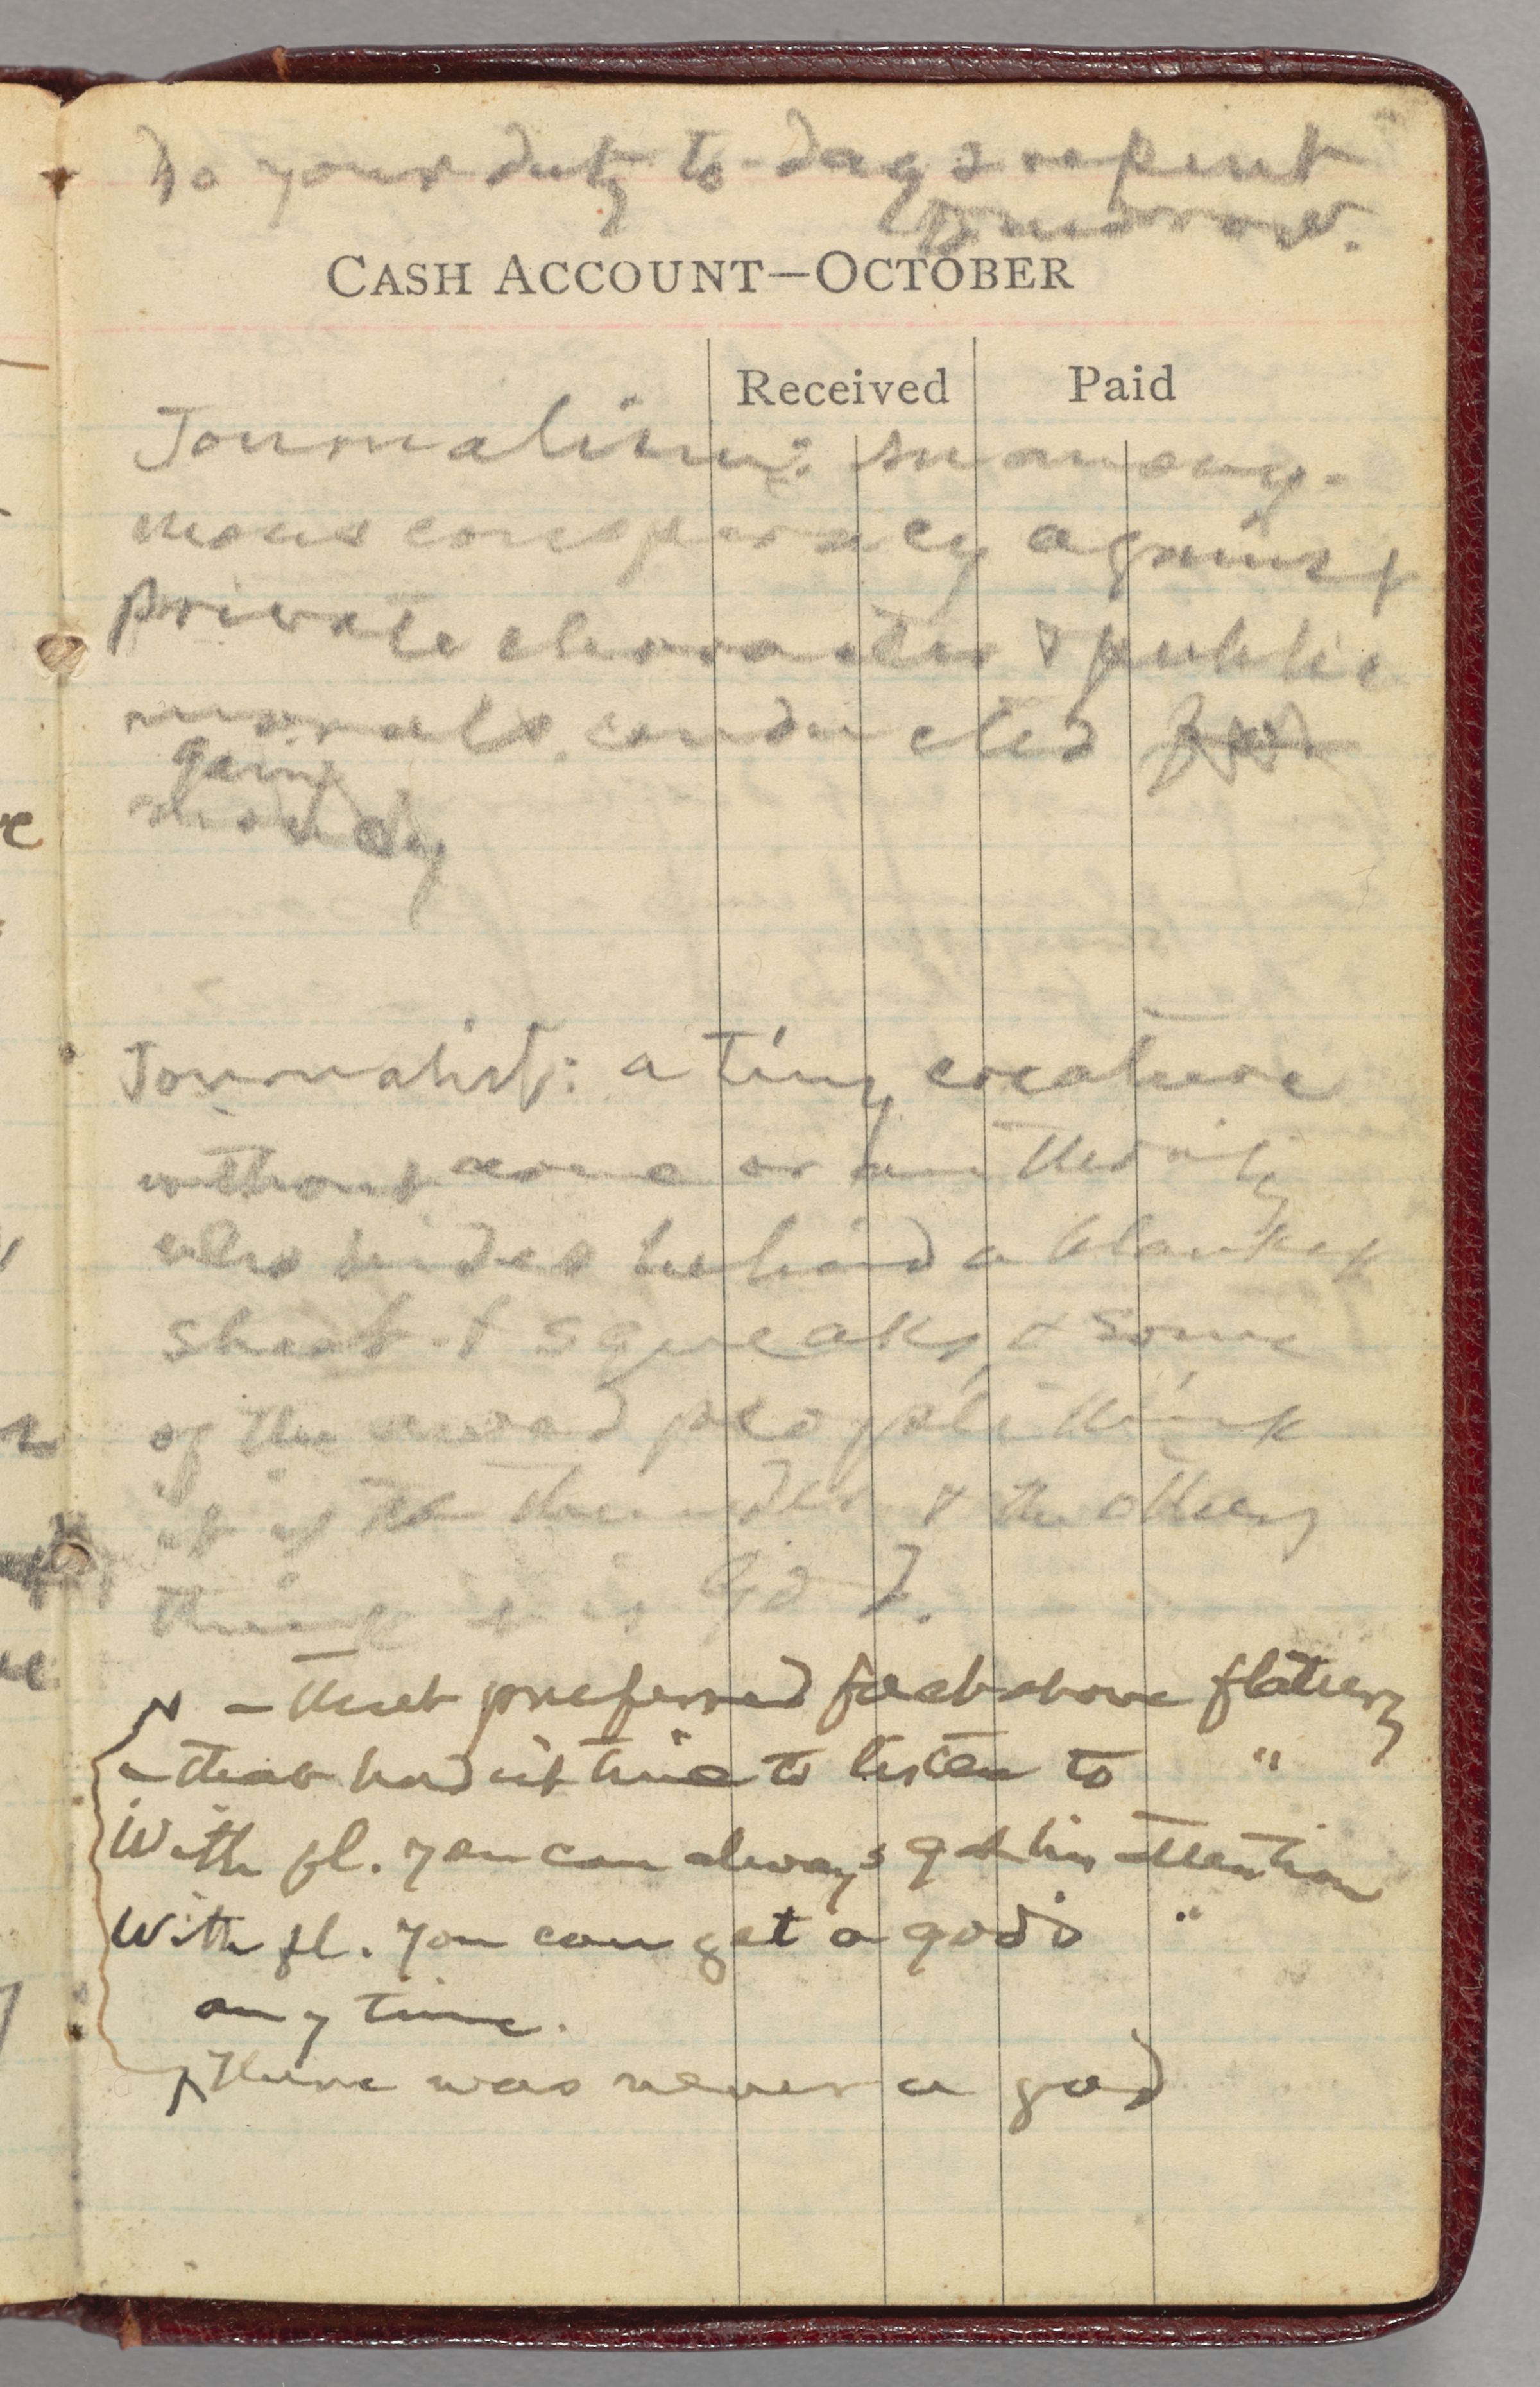 Do your duty to-day & repent
tomorrow.
CASH ACCOUNT—OCTOBER
Received Paid
Journalism: anony-
mous conspiracy against
private character & public
morals, conducted for
gain
Journalist: a tiny creature
without name or authority
who hides behind a blanket
sheet & squeaks, & some
of the people think
it is the thunder & the others
think it is God.
N – that preferred above flattery
– that hadn't time to listen to "
With fl. you can always get his attention
With fl. you can get a god's "
any time.
there was never a god